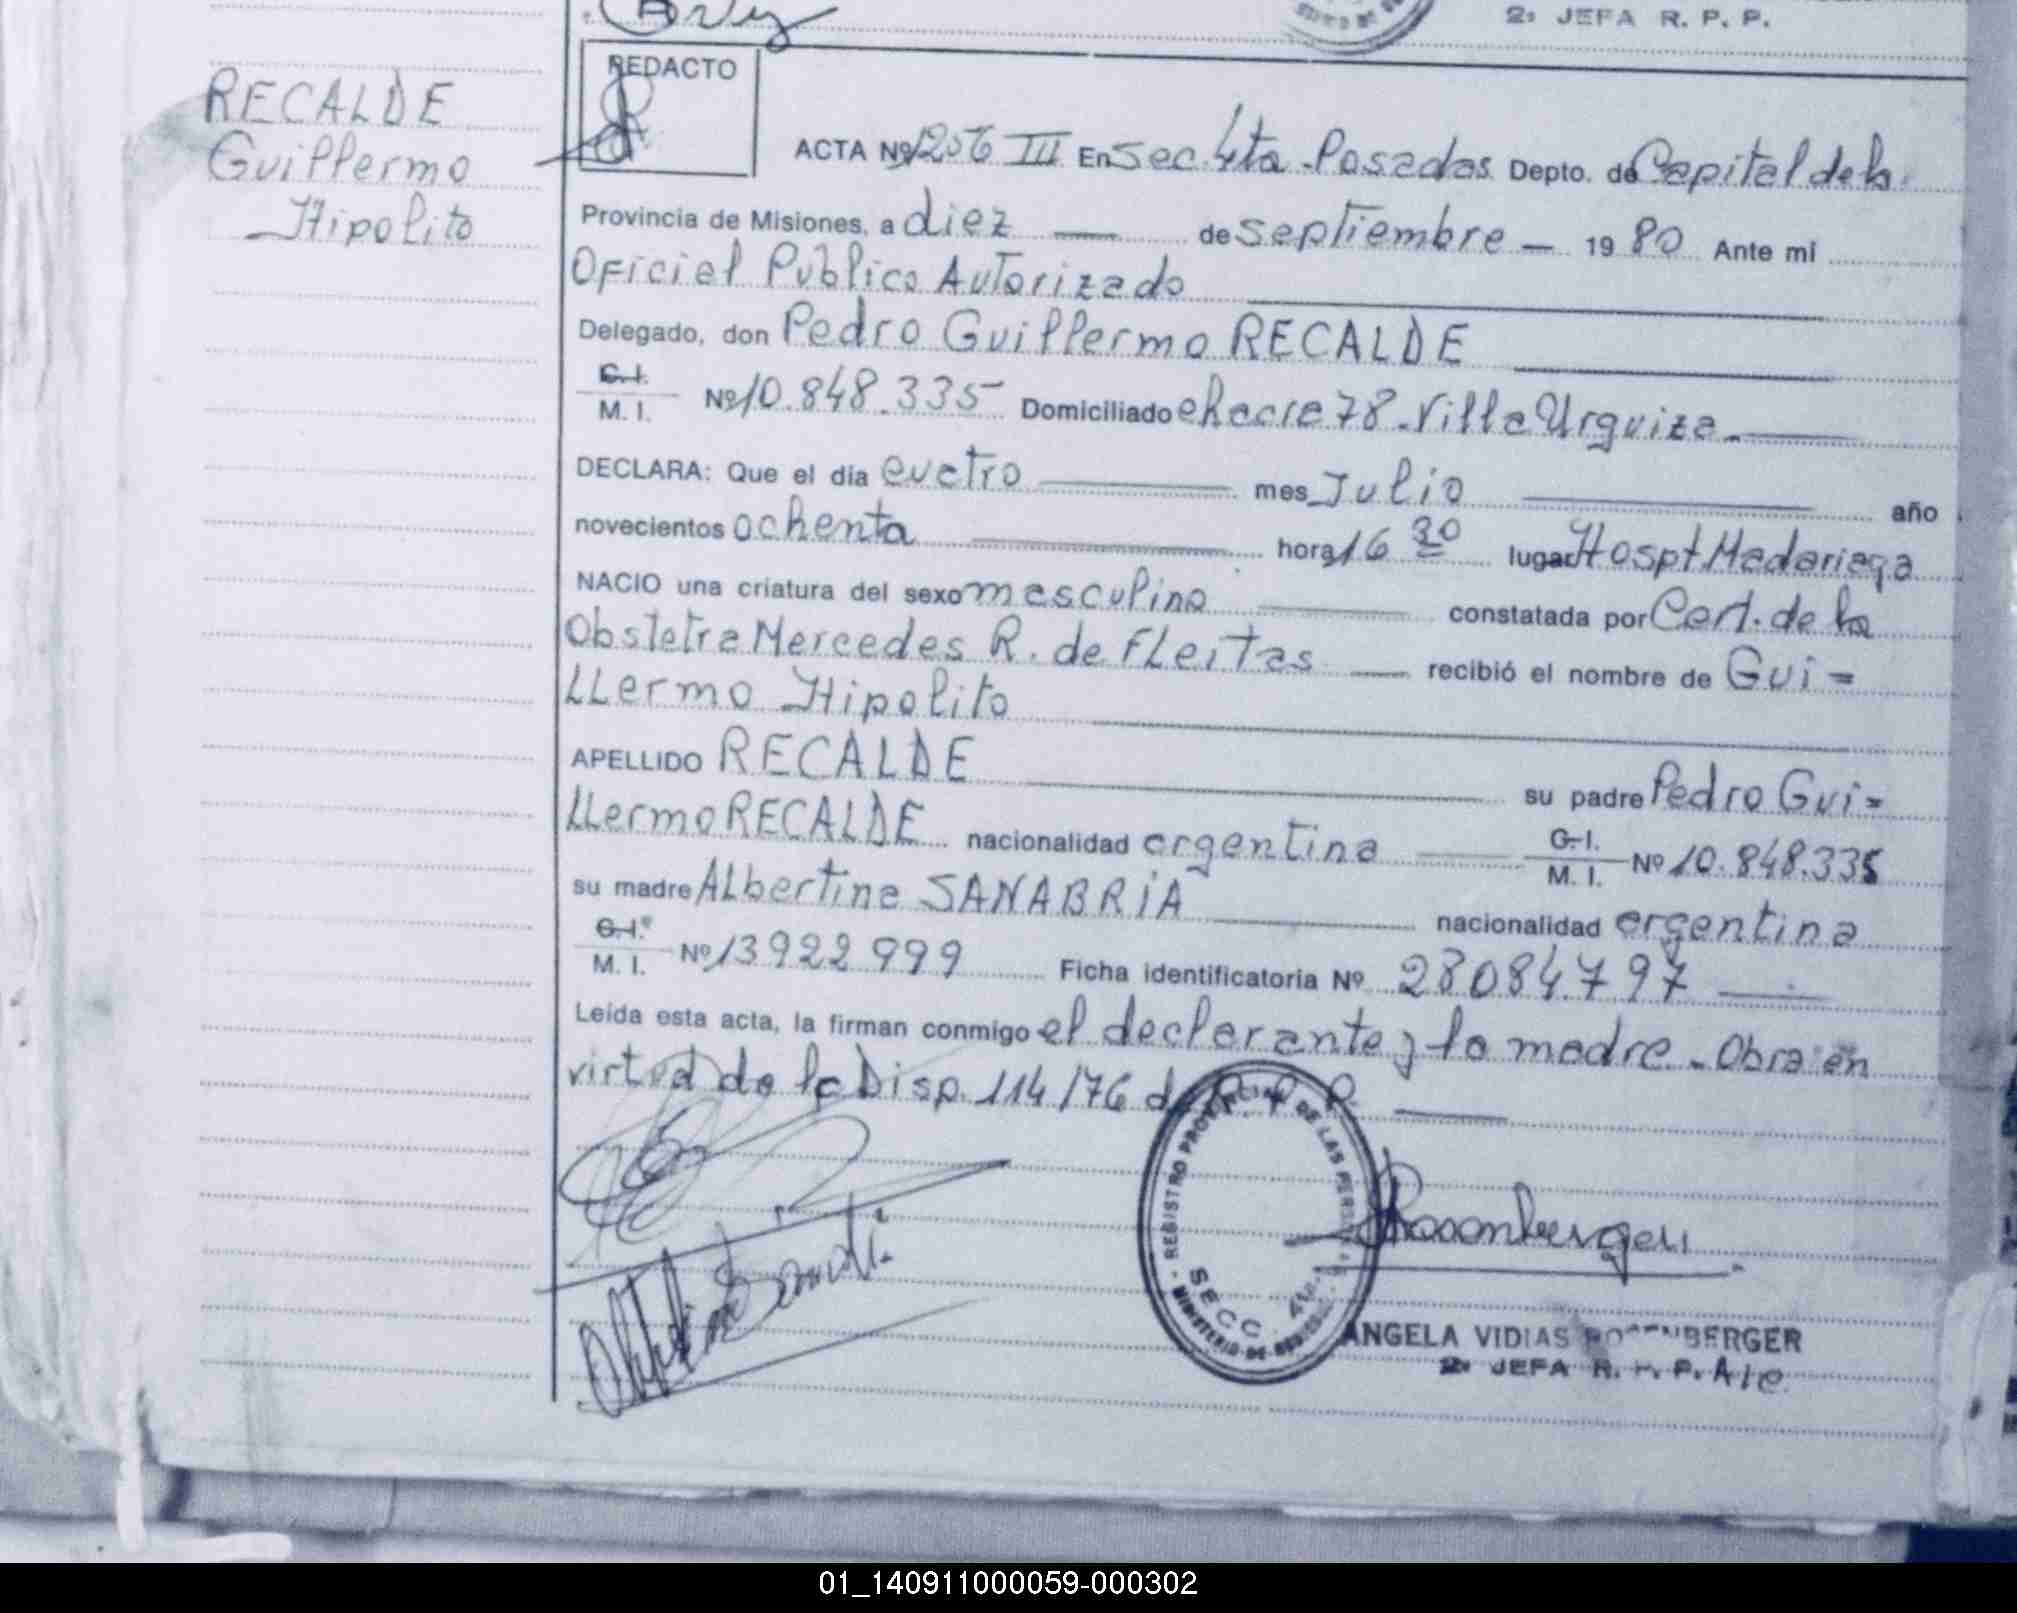 2ª JEFA R. P. P.
RECALDE
Guillermo
Hipolito
REDACTO
ACTA Nº 1256 III En Sec. 4ta - Posadas Depto. de Capital de la
Provincia de Misiones, a diez — de septiembre — 1980 Ante mi
Oficial Publico Autorizado
Delegado, don Pedro Guillermo RECALDE
C. I.
M. I. Nº 10.848.335 Domiciliado chacra 78 - Villa Urquiza -
DECLARA: Que el dia cuatro — mes Julio — año
novecientos ochenta — hora 16 30 lugar Hospt. Madariaga
NACIO una criatura del sexo masculino — constatada por Cert. de la
Obstetra Mercedes R. de FLeitas — recibió el nombre de Gui =
LLermo Hipolito
APELLIDO RECALDE — su padre Pedro Gui =
LLermo RECALDE nacionalidad argentina — C. I. M. I. Nº 10.848.335
su madre ALbertina SANABRIA — nacionalidad argentina
C. I.
M. I. Nº 13922999 Ficha identificatoria Nº 28084797 —
Leída esta acta, la firman conmigo el declarante y la madre - Obra en
virtud de la Disp. 114/76 de R. P. P. —
REGISTRO PROVINCIAL DE LAS PERS
SECC. 4ta.
MINISTERIO DE
ANGELA VIDIAS ROSENBERGER
2ª JEFA R. P. P. A/c
01_140911000059-000302